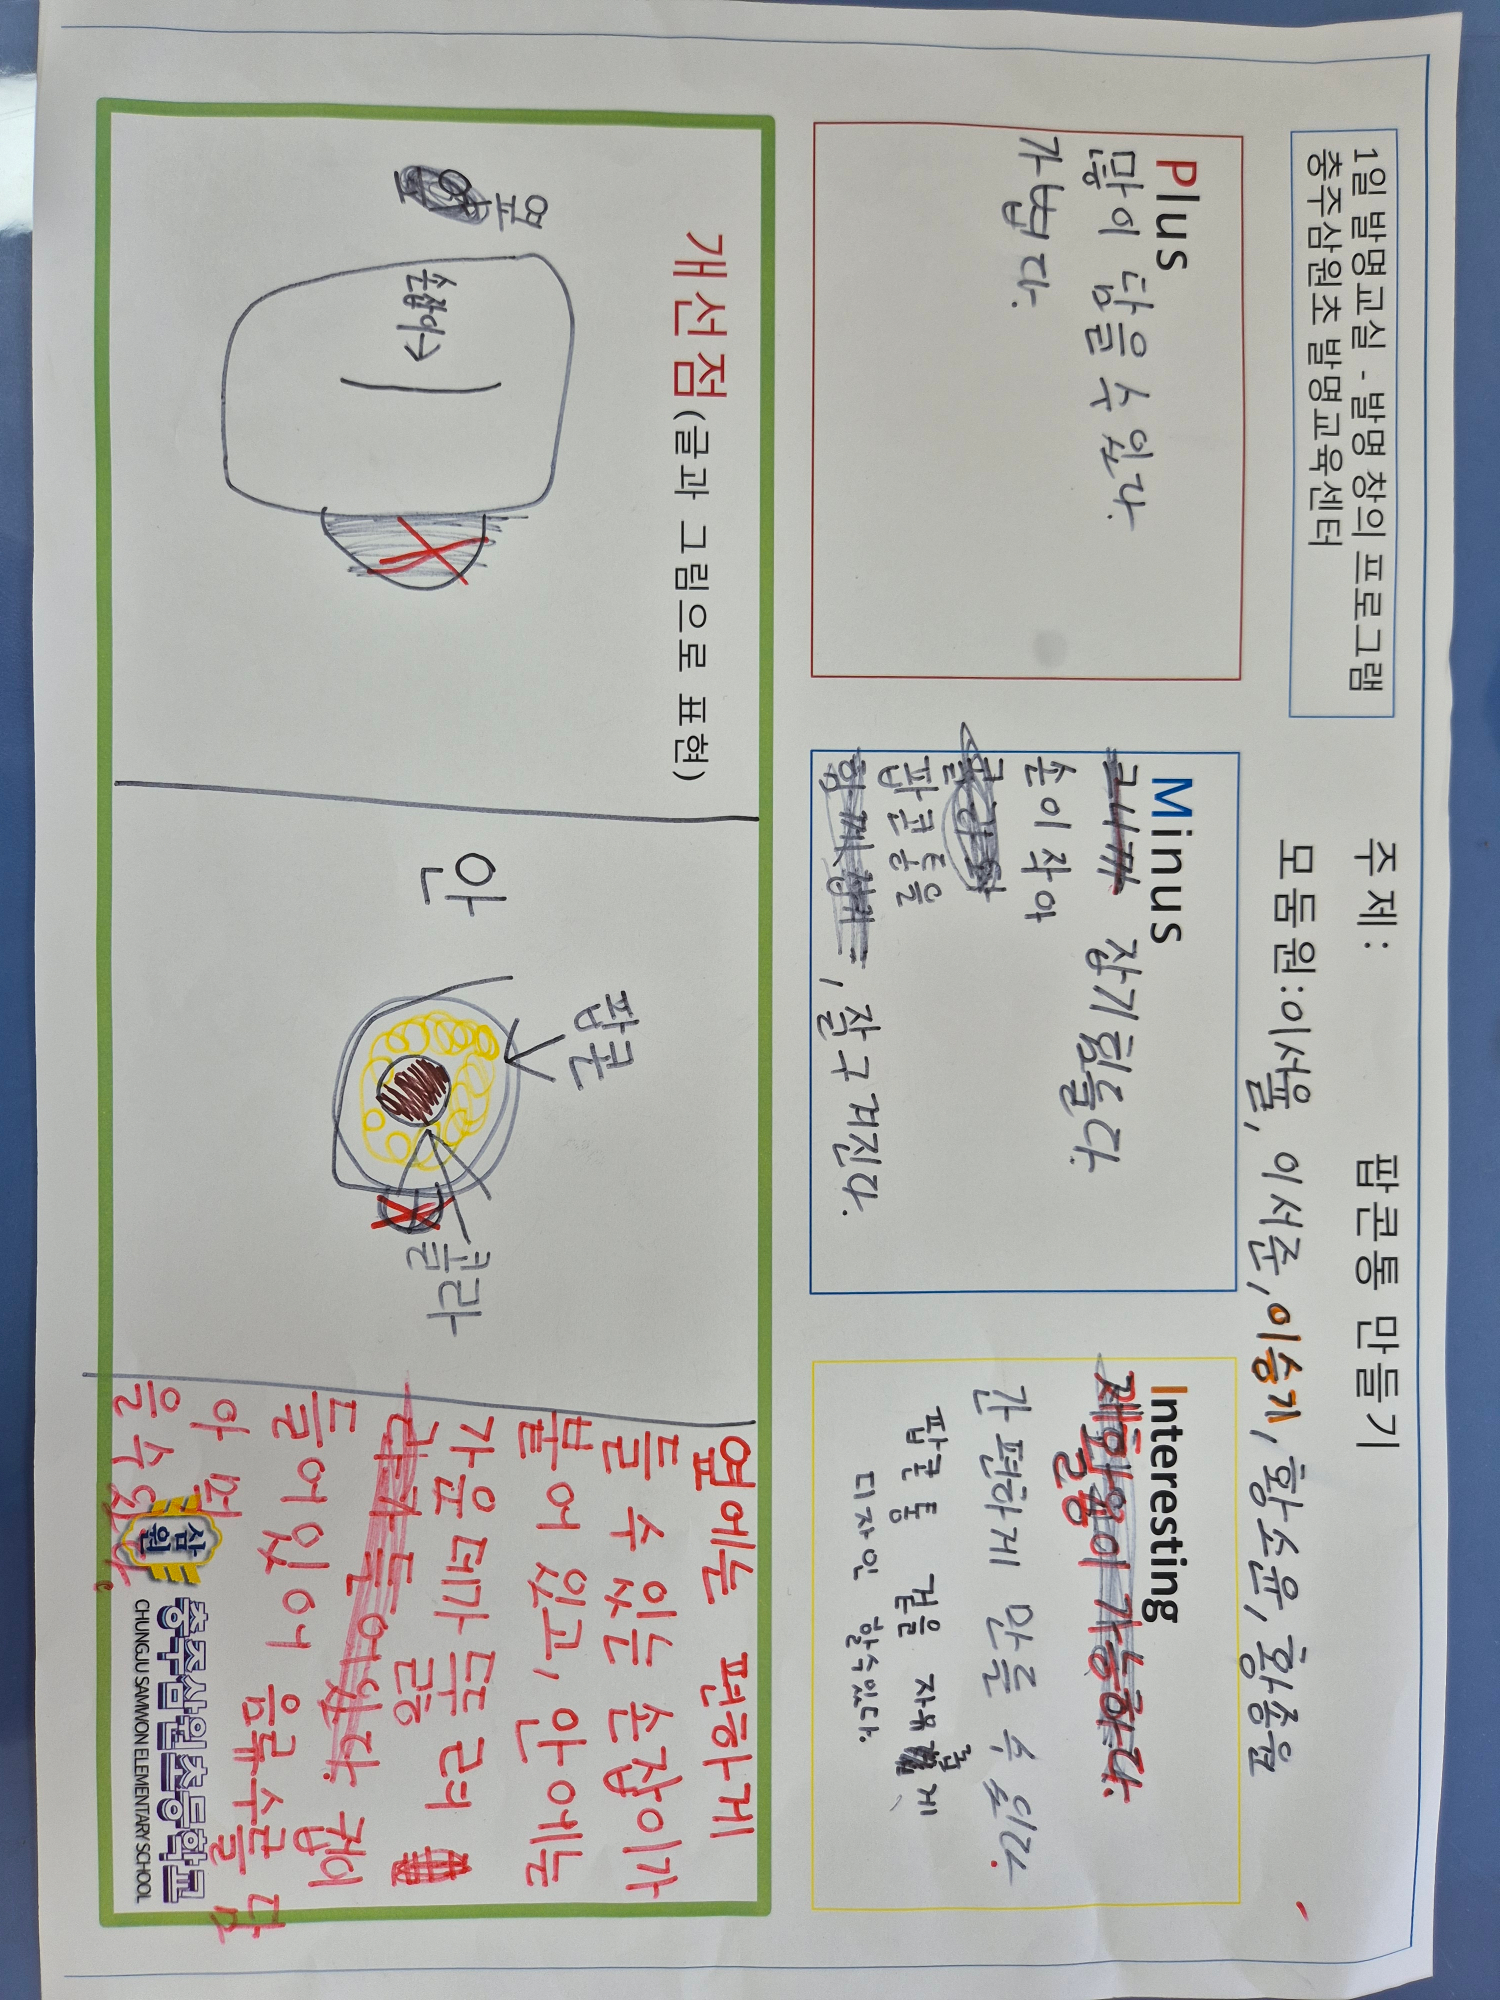 1일 발명교실 - 발명 창의 프로그램
충주삼원초 발명교육센터
주제: 팝콘통 만들기
모둠원:이서율, 이서준, 이승기, 황소윤, 황종윤
Plus
많이 담을 수 있다.
가볍다.
Minus
잡기힘들다.
손이 작아
팝콘통을
, 잘 구겨진다.
Interesting
간편하게 만들 수 있다.
팝콘통 겉을 자유롭게
디자인 할수있다.
개선점(글과 그림으로 표현)
옆
손잡이→
안
팝콘
콜라
옆에는 편하게
들 수 있는 손잡이가
붙어 있고, 안에는
가운데가 뚜러
들어있어 음료수를 담
아 먹
을 수 있다.
삼원
충주삼원초등학교
CHUNGJU SAMWON ELEMENTARY SCHOOL